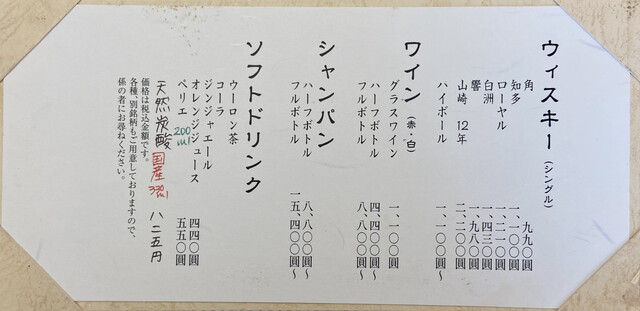 ウィスキー（シングル）
角 九九〇圓
知多 一、一〇〇圓
ローヤル 一、二一〇圓
白洲 一、四三〇圓
響 一、九八〇圓
山崎 12年 二、二〇〇圓
ハイボール 一、一〇〇圓〜
ワイン（赤・白）
グラスワイン 一、一〇〇圓
ハーフボトル 四、四〇〇圓〜
フルボトル 八、八〇〇圓〜
シャンパン
ハーフボトル 八、八〇〇圓〜
フルボトル 一五、四〇〇圓〜
ソフトドリンク
ウーロン茶
コーラ
ジンジャエール
オレンジジュース 四四〇圓
ペリエ 200ml 五五〇圓
天然炭酸 国産 330ml 八二五円
価格は税込金額です。
各種、別銘柄もご用意しておりますので、
係の者にお尋ねください。